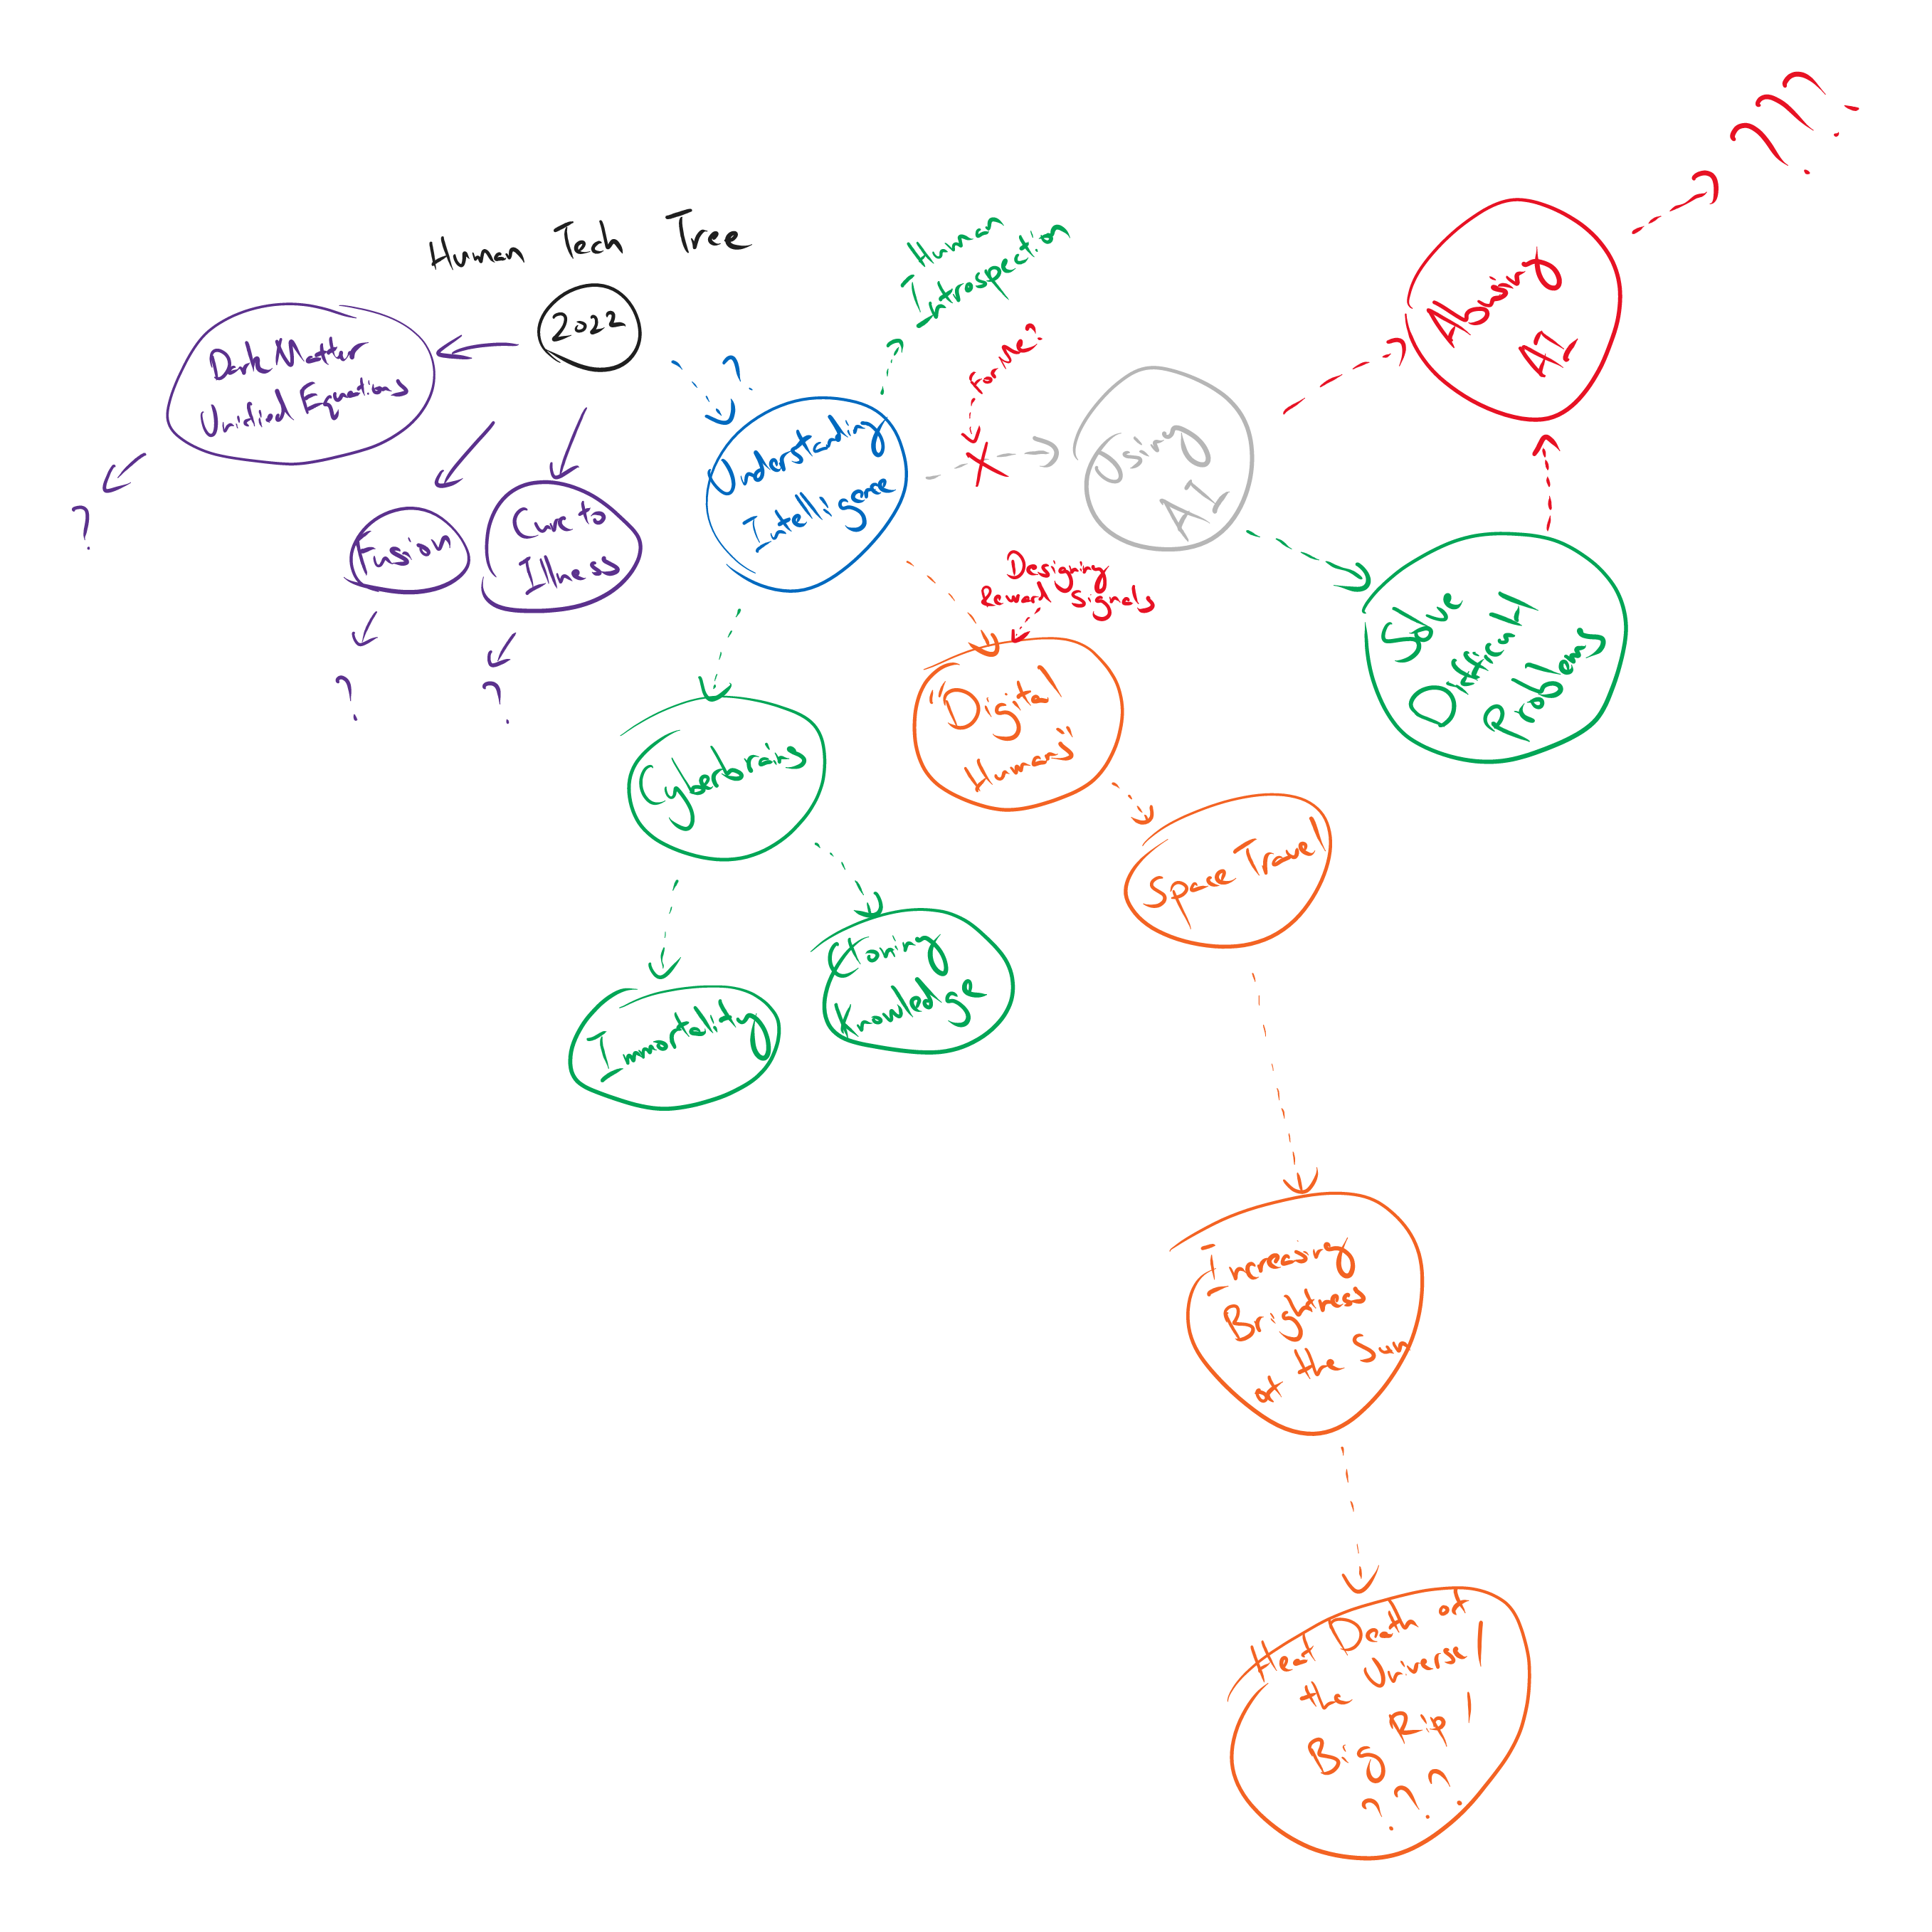 Human Tech Tree
2022
Dark Matter
Unified Equations
?
Fusion
?
Cure to
Illness
?
?
Understanding
Intelligence
Human
Introspection
?
For Now?
Doing
AI
?
Abusing
AI
?
???
Solve
Outside
Problems
Designing
Reward Signals
"Digital
Humans"
Cyberbrains
Immortality
Storing
Knowledge
Space Travel
Increasing
Brightness
of the Sun
Heat Death of
the Universe/
Big Rip/
???